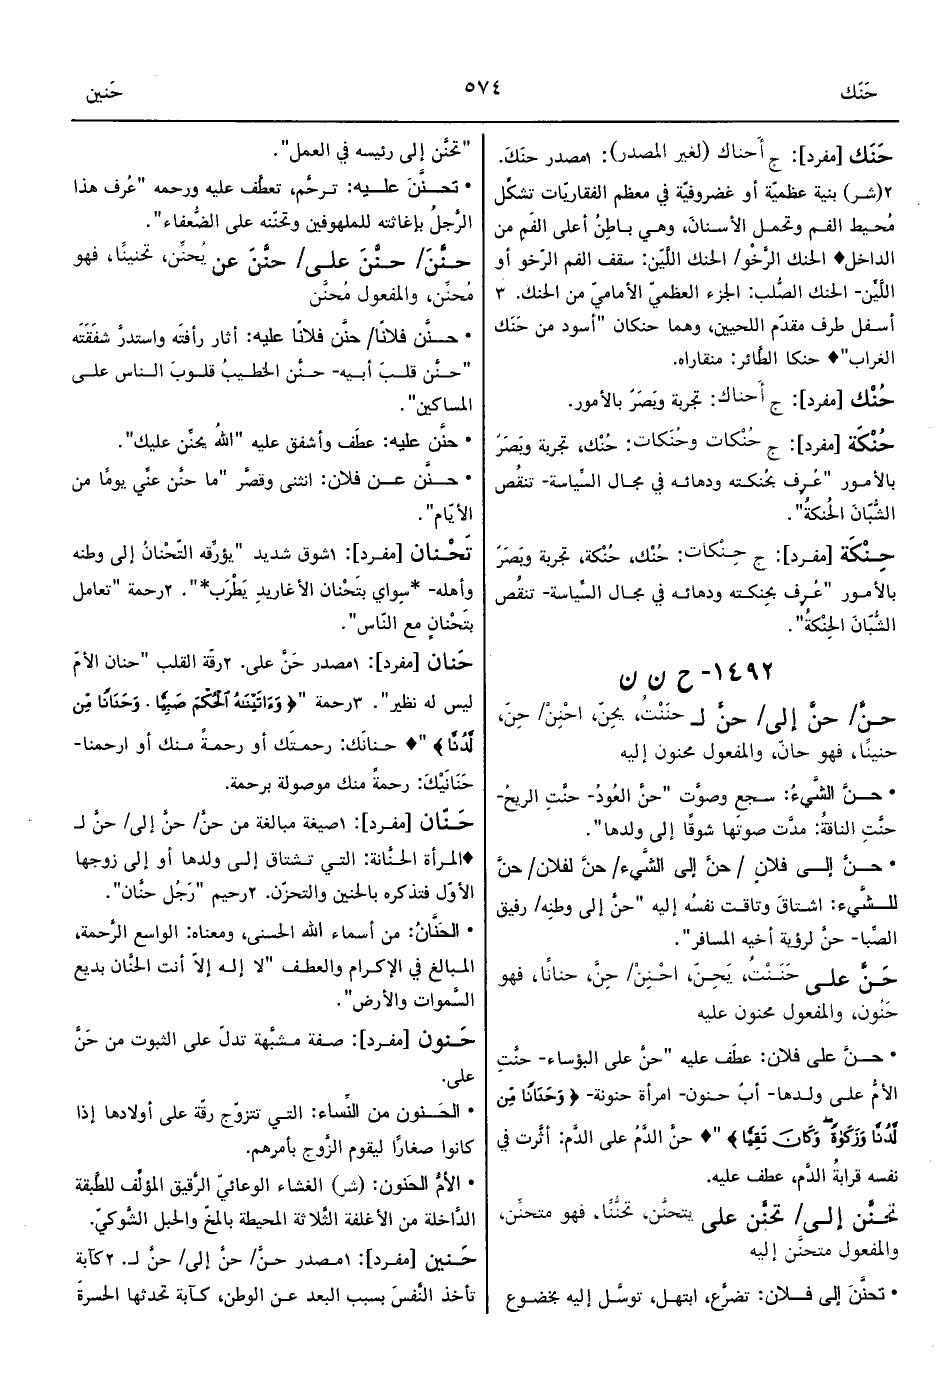 حَنَك
٥٧٤
حَنين
حَنَك [مفرد]: ج أحناك (لغير المصدر): ١مصدر حنَكَ.
٢(شر) بنية عظميّة أو غضروفيّة في معظم الفقاريّات تشكّل
مُحيط الفم وتحمل الأسنان، وهي باطِنُ أعلى الفَمِ من
الداخل♦ الحنك الرَّخو/ الحنك اللَّيّن: سقف الفم الرّخو أو
اللَّيِّن- الحنك الصُّلب: الجزء العظميّ الأماميّ من الحنك. ٣
أسفل طرف مقدّم اللحيين، وهما حنكان "أسود من حَنَك
الغراب"♦ حنكا الطَّائر: منقاراه.
حُنْك [مفرد]: ج أحناك: تجربة وبَصَرٌ بالأمور.
حُنْكَة [مفرد]: ج حُنْكات وحُنَكات: حُنْك، تجربة وبَصَرٌ
بالأمور "عُرف بحُنكته ودهائه في مجال السِّياسة- تنقُص
الشُّبّانَ الحُنكةُ".
حِنْكَة [مفرد]: ج حِنْكات: حُنْك، حُنْكة، تجربة وبَصَرٌ
بالأمور "عُرف بحِنكته ودهائه في مجال السِّياسة- تنقُص
الشُّبّانَ الحِنْكةُ".
١٤٩٢- ح ن ن
حنَّ/ حنَّ إلى/ حنَّ لـ حنَنْتُ، يحِنّ، احْنِنْ/ حِنَّ،
حنينًا، فهو حانّ، والمفعول محنون إليه
• حـنَّ الشَّيءُ: سجع وصوَّت "حنَّ العُودُ- حنَّتِ الريحُ-
حنَّتِ الناقةُ: مدّت صوتَها شوقًا إلى ولدها".
• حـنَّ إلـى فلانٍ / حنَّ إلى الشَّيء/ حنَّ لفلان/ حنَّ
للـشَّيء: اشتاقَ وتاقت نفسُه إليه "حنَّ إلى وطنِه/ رفيق
الصِّبا- حنَّ لرؤية أخيه المسافر".
حَنَّ علـى حَنَنْتُ، يَحِنّ، احْنِنْ/ حِنَّ، حنانًا، فهو
حَنُون، والمفعول محنون عليه
• حـنَّ على فلان: عطَف عليه "حنَّ على البؤساء- حنَّتِ
الأمُّ على ولدها- أبٌ حنون- امرأة حنونة- ﴿ وَحَنَانًا مِّن
لَّدُنَّا وَزَكَوٰةً وَكَانَ تَقِيًّا ﴾ "♦ حنَّ الدَّمُ على الدَّم: أثَّرت في
نفسه قرابةُ الدَّم، عطف عليه.
تحنَّن إلى/ تحنَّن على يتحنَّن، تحنُّنًا، فهو متحنِّن،
والمفعول متحنَّن إليه
• تحنَّنَ إلى فـلان: تضرَّع، ابتهل، توسَّل إليه بخضوع
"تحنَّن إلى رئيسه في العمل".
• تحنَّنَ عليه: ترحَّم، تعطَّف عليه ورحمه "عُرف هذا
الرَّجلُ بإغاثته للملهوفين وتحنّنه على الضُّعفاء".
حنَّنَ/ حنَّنَ على/ حنَّنَ عن يُحنِّن، تحنينًا، فهو
مُحنِّن، والمفعول مُحنَّن
• حـنَّن فلانًا/ حنَّن فلانًا عليه: أثار رأفته واستدرَّ شفَقَتَه
"حنَّن قلبَ أبيه- حنَّن الخطيبُ قلوبَ الناس على
المساكين".
• حنَّن عليه: عطَف وأشفق عليه "اللهُ يحنِّن عليك".
• حـنَّن عـن فلان: انثنى وقصَّر "ما حنَّن عنِّي يومًا من
الأيّام".
تَحْنان [مفرد]: ١شوق شديد "يؤرِّقه التَّحْنانُ إلى وطنه
وأهله- *سِواي بتَحْنان الأغاريدِ يَطْرَب*". ٢رحمة "تعامل
بتَحْنانٍ مع النّاس".
حَنان [مفرد]: ١مصدر حَنَّ على. ٢رقّة القلب "حنان الأمّ
ليس له نظير". ٣رحمة "﴿ وَءَاتَيْنَٰهُ ٱلْحُكْمَ صَبِيًّا . وَحَنَانًا مِّن
لَّدُنَّا ﴾ "♦ حنانَك: رحمتَك أو رحمةً منك أو ارحمنا-
حَنَانَيْكَ: رحمةً منك موصولة برحمة.
حَنّان [مفرد]: ١صيغة مبالغة من حنَّ/ حنَّ إلى/ حنَّ لـ
♦المرأة الحنَّانة: التي تشتاق إلى ولدها أو إلى زوجها
الأوّل فتذكره بالحنين والتحزّن. ٢رحيم "رَجُل حنَّان".
• الحَنَّانُ: من أسماء الله الحسنى، ومعناه: الواسع الرَّحمة،
المبالغ في الإكرام والعطف "لا إله إلاّ أنت الحنَّان بديع
السَّموات والأرض".
حَنون [مفرد]: صفة مشبَّهة تدلّ على الثبوت من حَنَّ
على.
• الحَنون من النِّساء: التي تتزوّج رقّة على أولادها إذا
كانوا صغارًا ليقوم الزَّوج بأمرهم.
• الأمُّ الحَنون: (شر) الغشاء الوعائيّ الرَّقيق المؤلِّف للطَّبقة
الدَّاخلة من الأغلفة الثَّلاثة المحيطة بالمخّ والحبل الشَّوكيّ.
حَنين [مفرد]: ١مصدر حنَّ/ حنَّ إلى/ حنَّ لـ. ٢كآبة
تأخذ النَّفسَ بسبب البعد عن الوطن، كآبة تحدثها الحسرةُ